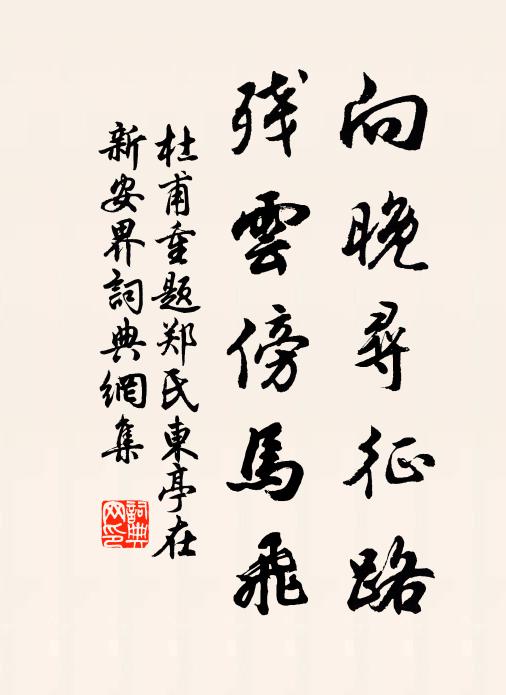 向晚尋征路
残雲傍馬飛
杜甫重题郑氏東亭在
新安界詞典網集
詞典
网印